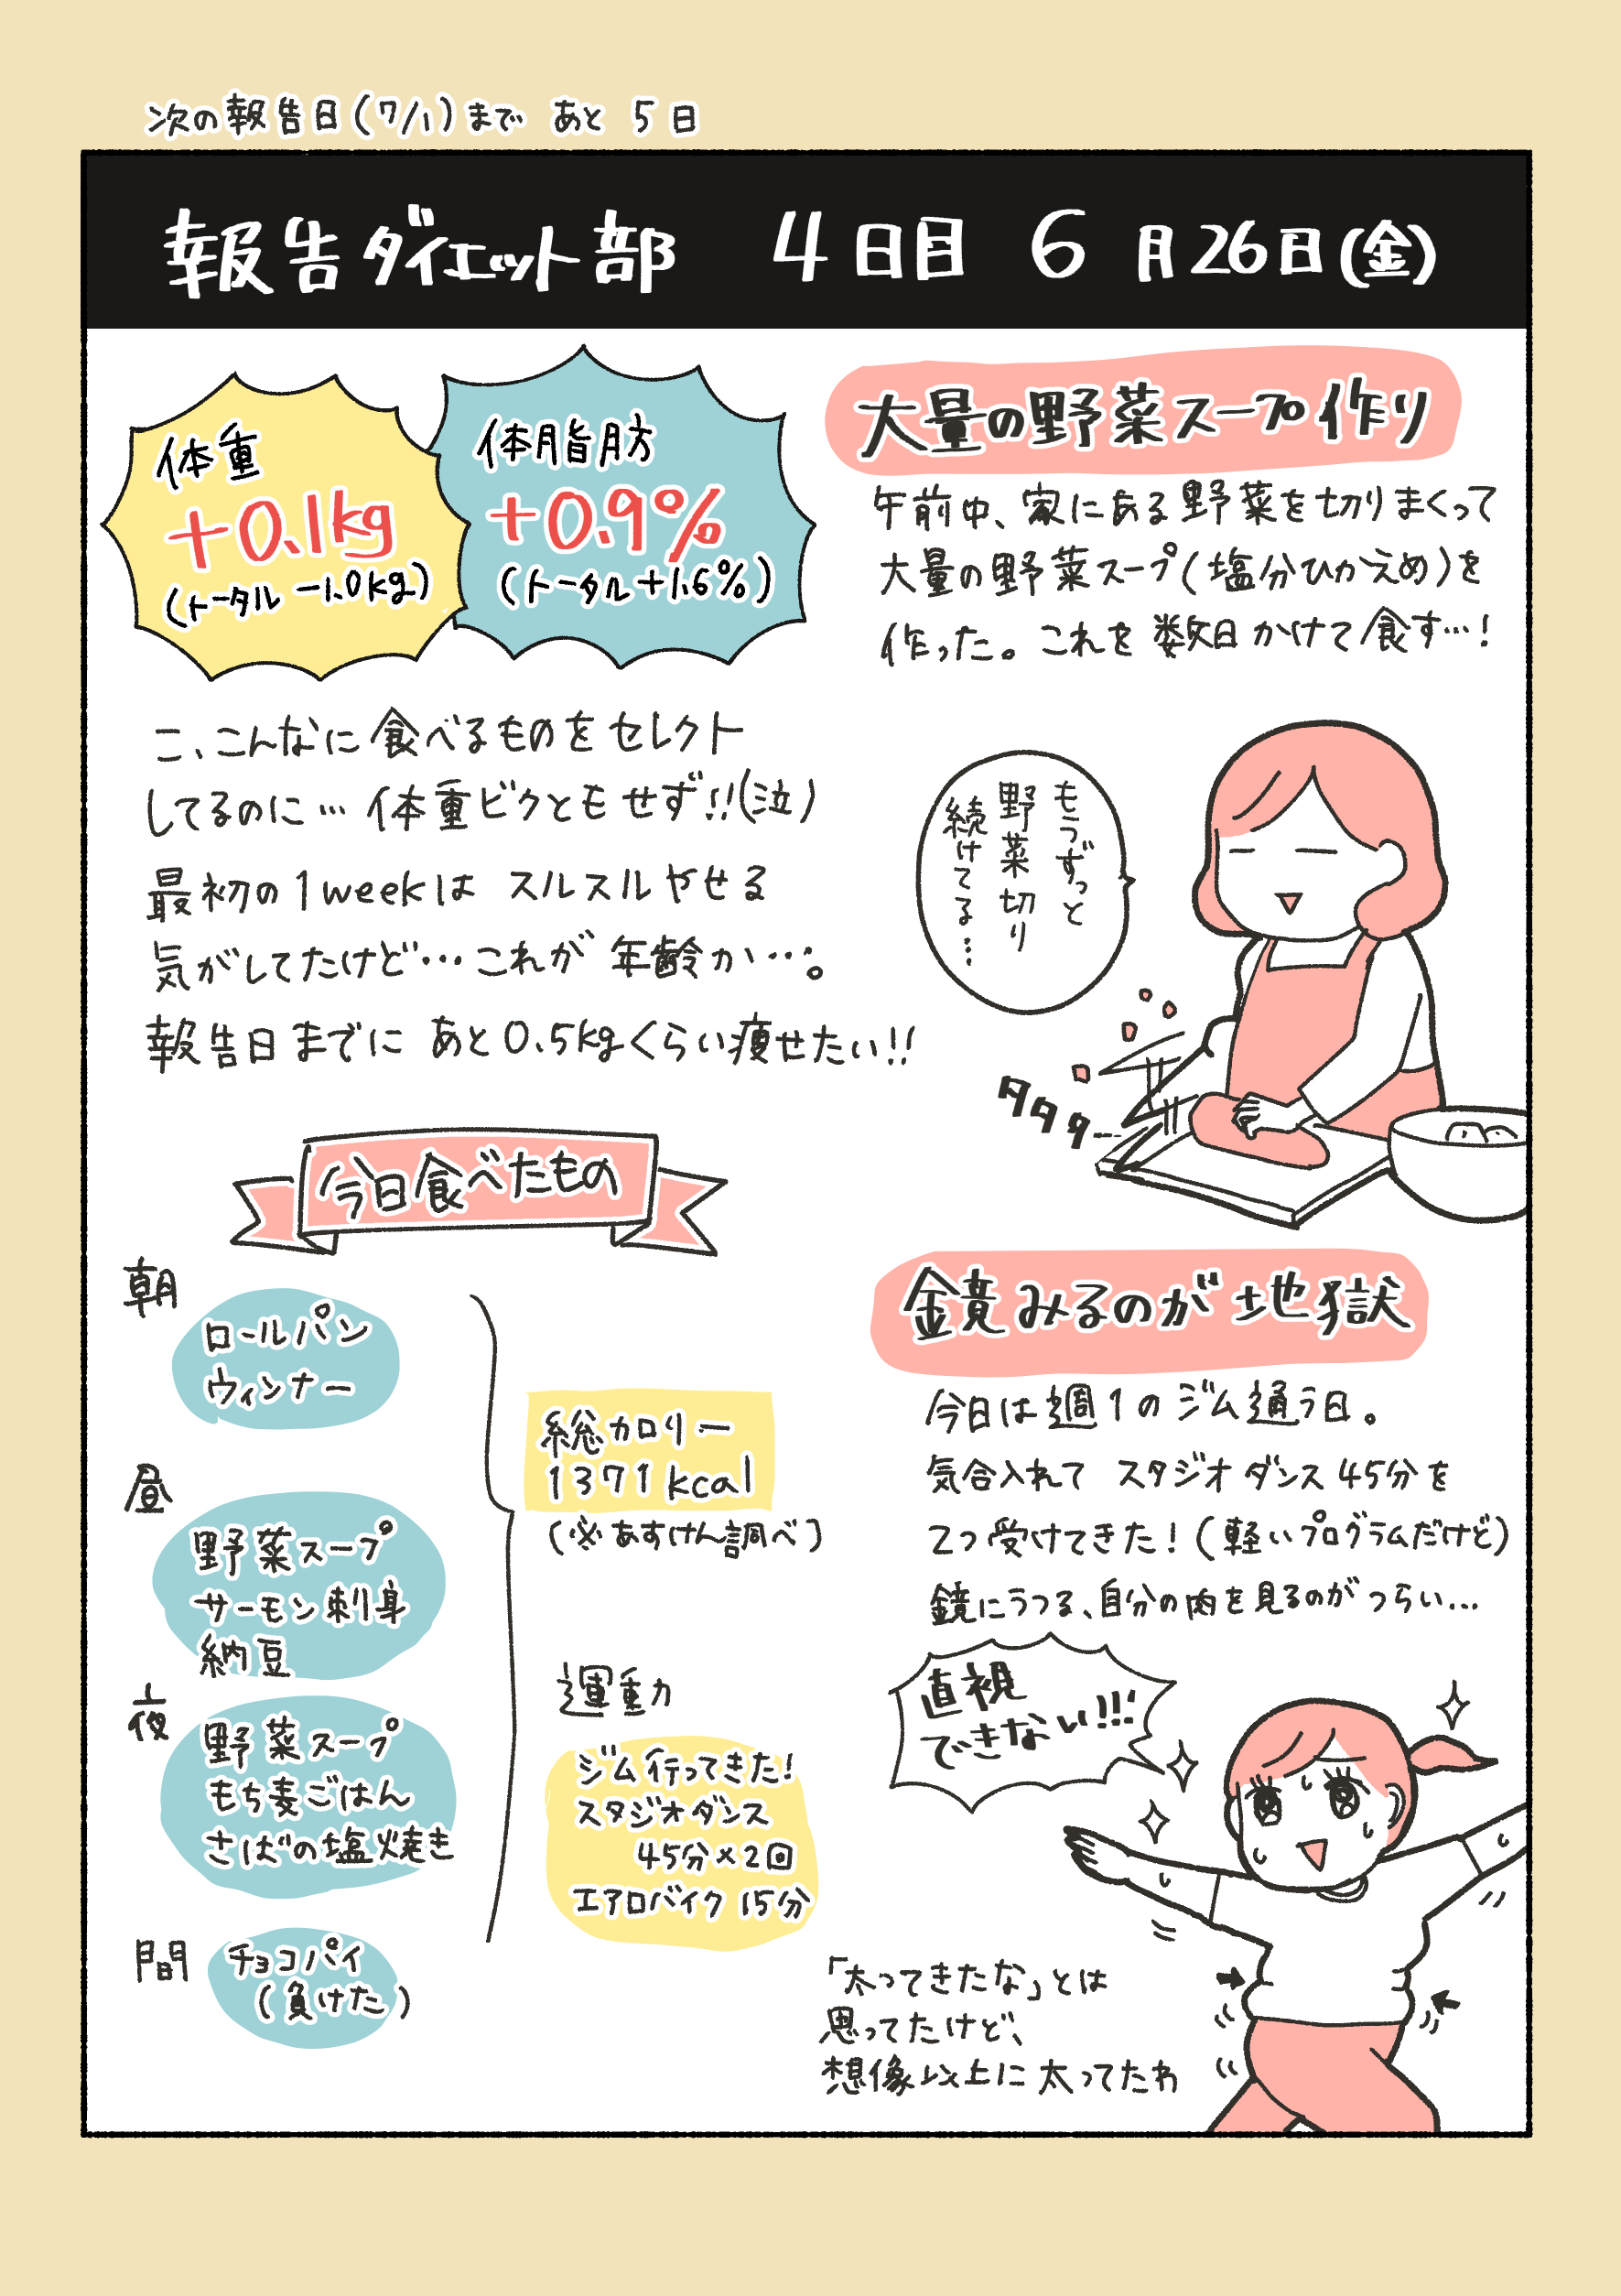 次の報告日(7/1)まで あと 5日
報告ダイエット部 4日目 6月26日(金)
体重
+0.1kg
(トータル -1.0kg)
体脂肪
+0.9%
(トータル+1.6%)
こ、こんなに食べるものをセレクト
してるのに…体重ビクともせず!!(泣)
最初の1weekは スルスルやせる
気がしてたけど…これが年齢か…。
報告日までに あと0.5kgくらい痩せたい!!
大量の野菜スープ作り
午前中、家にある野菜を切りまくって
大量の野菜スープ(塩分ひかえめ)を
作った。これを数日かけて食す…!
もうずっと
野菜切り
続けてる…
タタター
今日食べたもの
朝
ロールパン
ウィンナー
昼
野菜スープ
サーモン刺身
納豆
夜
野菜スープ
もち麦ごはん
さばの塩焼き
間
チョコパイ
(負けた)
総カロリー
1371kcal
(※あすけん調べ)
運動
ジム行ってきた!
スタジオダンス
45分×2回
エアロバイク15分
鏡みるのが地獄
今日は週1のジム通う日。
気合入れて スタジオダンス45分を
2つ受けてきた!(軽いプログラムだけど)
鏡にうつる、自分の肉を見るのがつらい…
直視
できない!!!
「太ってきたな」とは
思ってたけど、
想像以上に太ってたわ